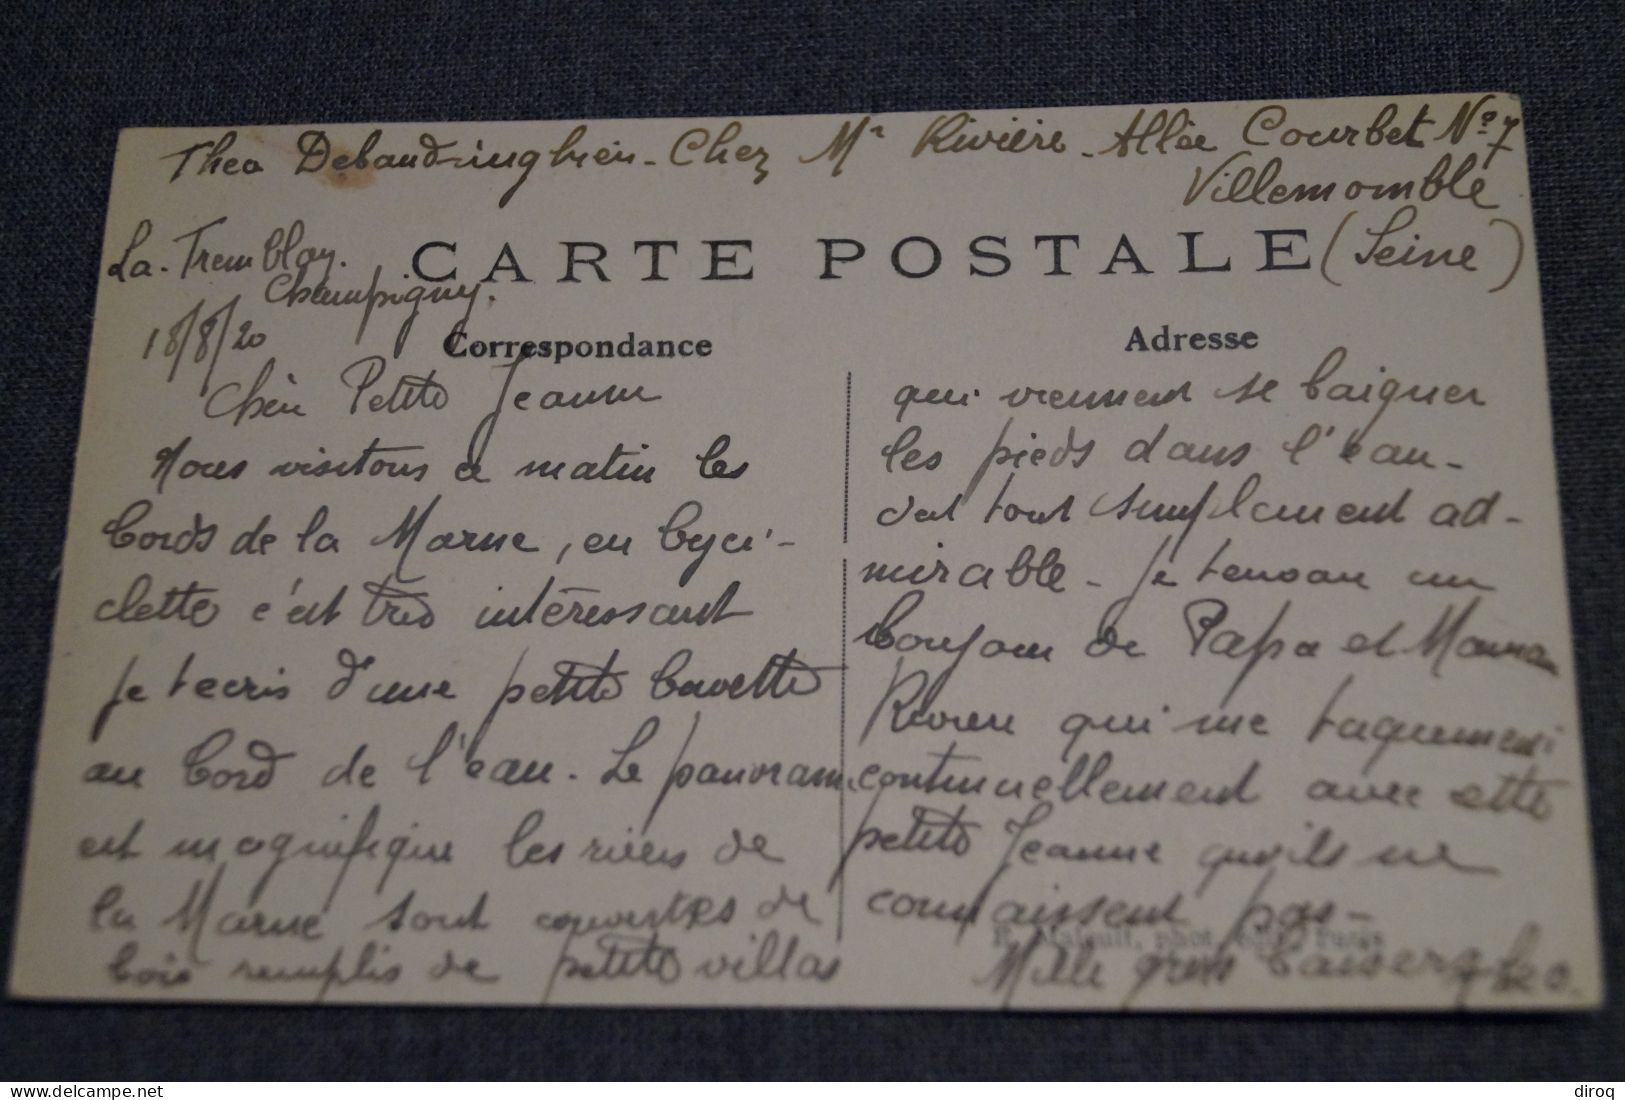 Theo Debaudringhien - Chez Mr Rivière - Allée Courbet No 7
Villemomble
(Seine)
La - Tremblay.
Champigny.
18/8/20
CARTE POSTALE
Correspondance
Adresse
Chère Petite Jeanne
Nous visitons ce matin les
bords de la Marne, en byci-
clette c'est très intéressant
je t'ecris d'une petite buvette
au bord de l'eau. Le panorama
est magnifique les rives de
la Marne sont couvertes de
bois remplis de petite villas
qui viennent se baigner
les pieds dans l'eau -
c'est tout simplement ad-
mirable - Je t'envoie un
bonjour de Papa et Maman
Rivière qui me taquinent
continuellement avec cette
petite Jeanne qu'ils ne
connaissent pas -
phot. Paris
Mille gros baisers Theo.
diroq